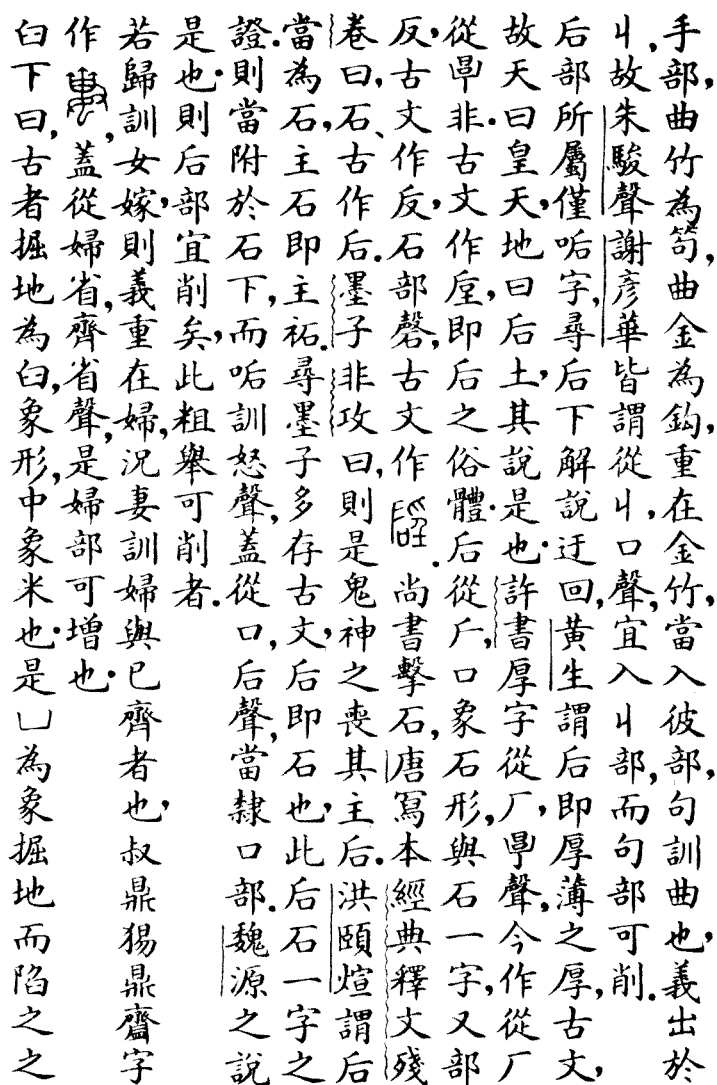 手部，曲竹為笱，曲金為鉤，重在金竹，當入彼部，句訓曲也，義出於
丩，故朱駿聲謝彥華皆謂從丩，口聲，宜入丩部，而句部可削．
后部所屬僅㖃字，尋后下解說迂回，黃生謂后即厚薄之厚，古文，
故天曰皇天，地曰后土，其說是也．許書厚字從厂，㫗聲，今作從厂
從㫗非．古文作垕，即后之俗體．后從𠂆，口象石形，與石一字，又部
反，古文作反，石部磬，古文作硜．尚書擊石，唐寫本經典釋文殘
卷曰，石、古作后．墨子非攻曰，則是鬼神之喪其主后．洪頤煊謂后
當為石，主石即主祏．尋墨子多存古文，后即石也，此后石一字之
證．則當附於石下，而㖃訓怒聲，蓋從口，后聲，當隸口部．魏源之說
是也．則后部宜削矣，此粗舉可削者．
若歸訓女嫁，則義重在婦，況妻訓婦與已齊者也，叔鼎猲鼎齍字
作，蓋從婦省，齊省聲，是婦部可增也．
臼下曰，古者掘地為臼，象形，中象米也．是凵為象掘地而陷之之